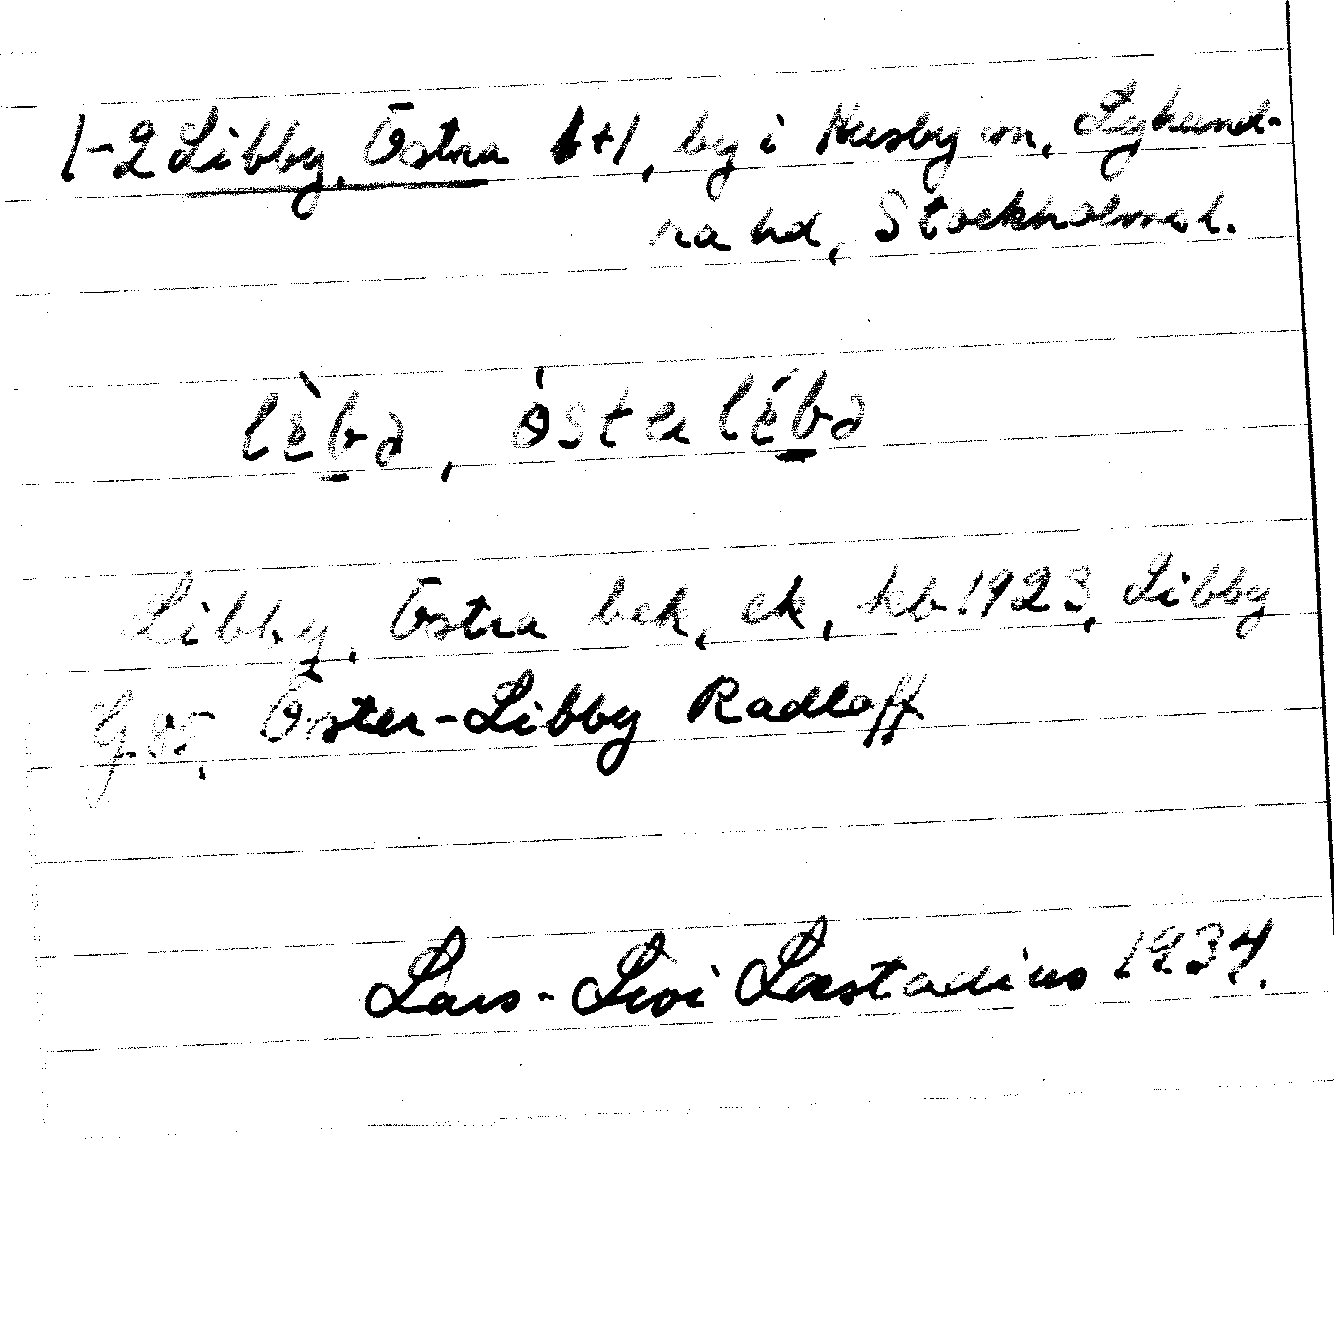 1-2 Libby, Östra 1+1, by i Husby sn, Lyhund-
ra hd, Stockholms l.
lèbə, österlébə
Libby, Östra bek, ek, kb. 1923, Libby
G.85, Öster-Libby Radloff
Lars-Levi Læstadius 1934.